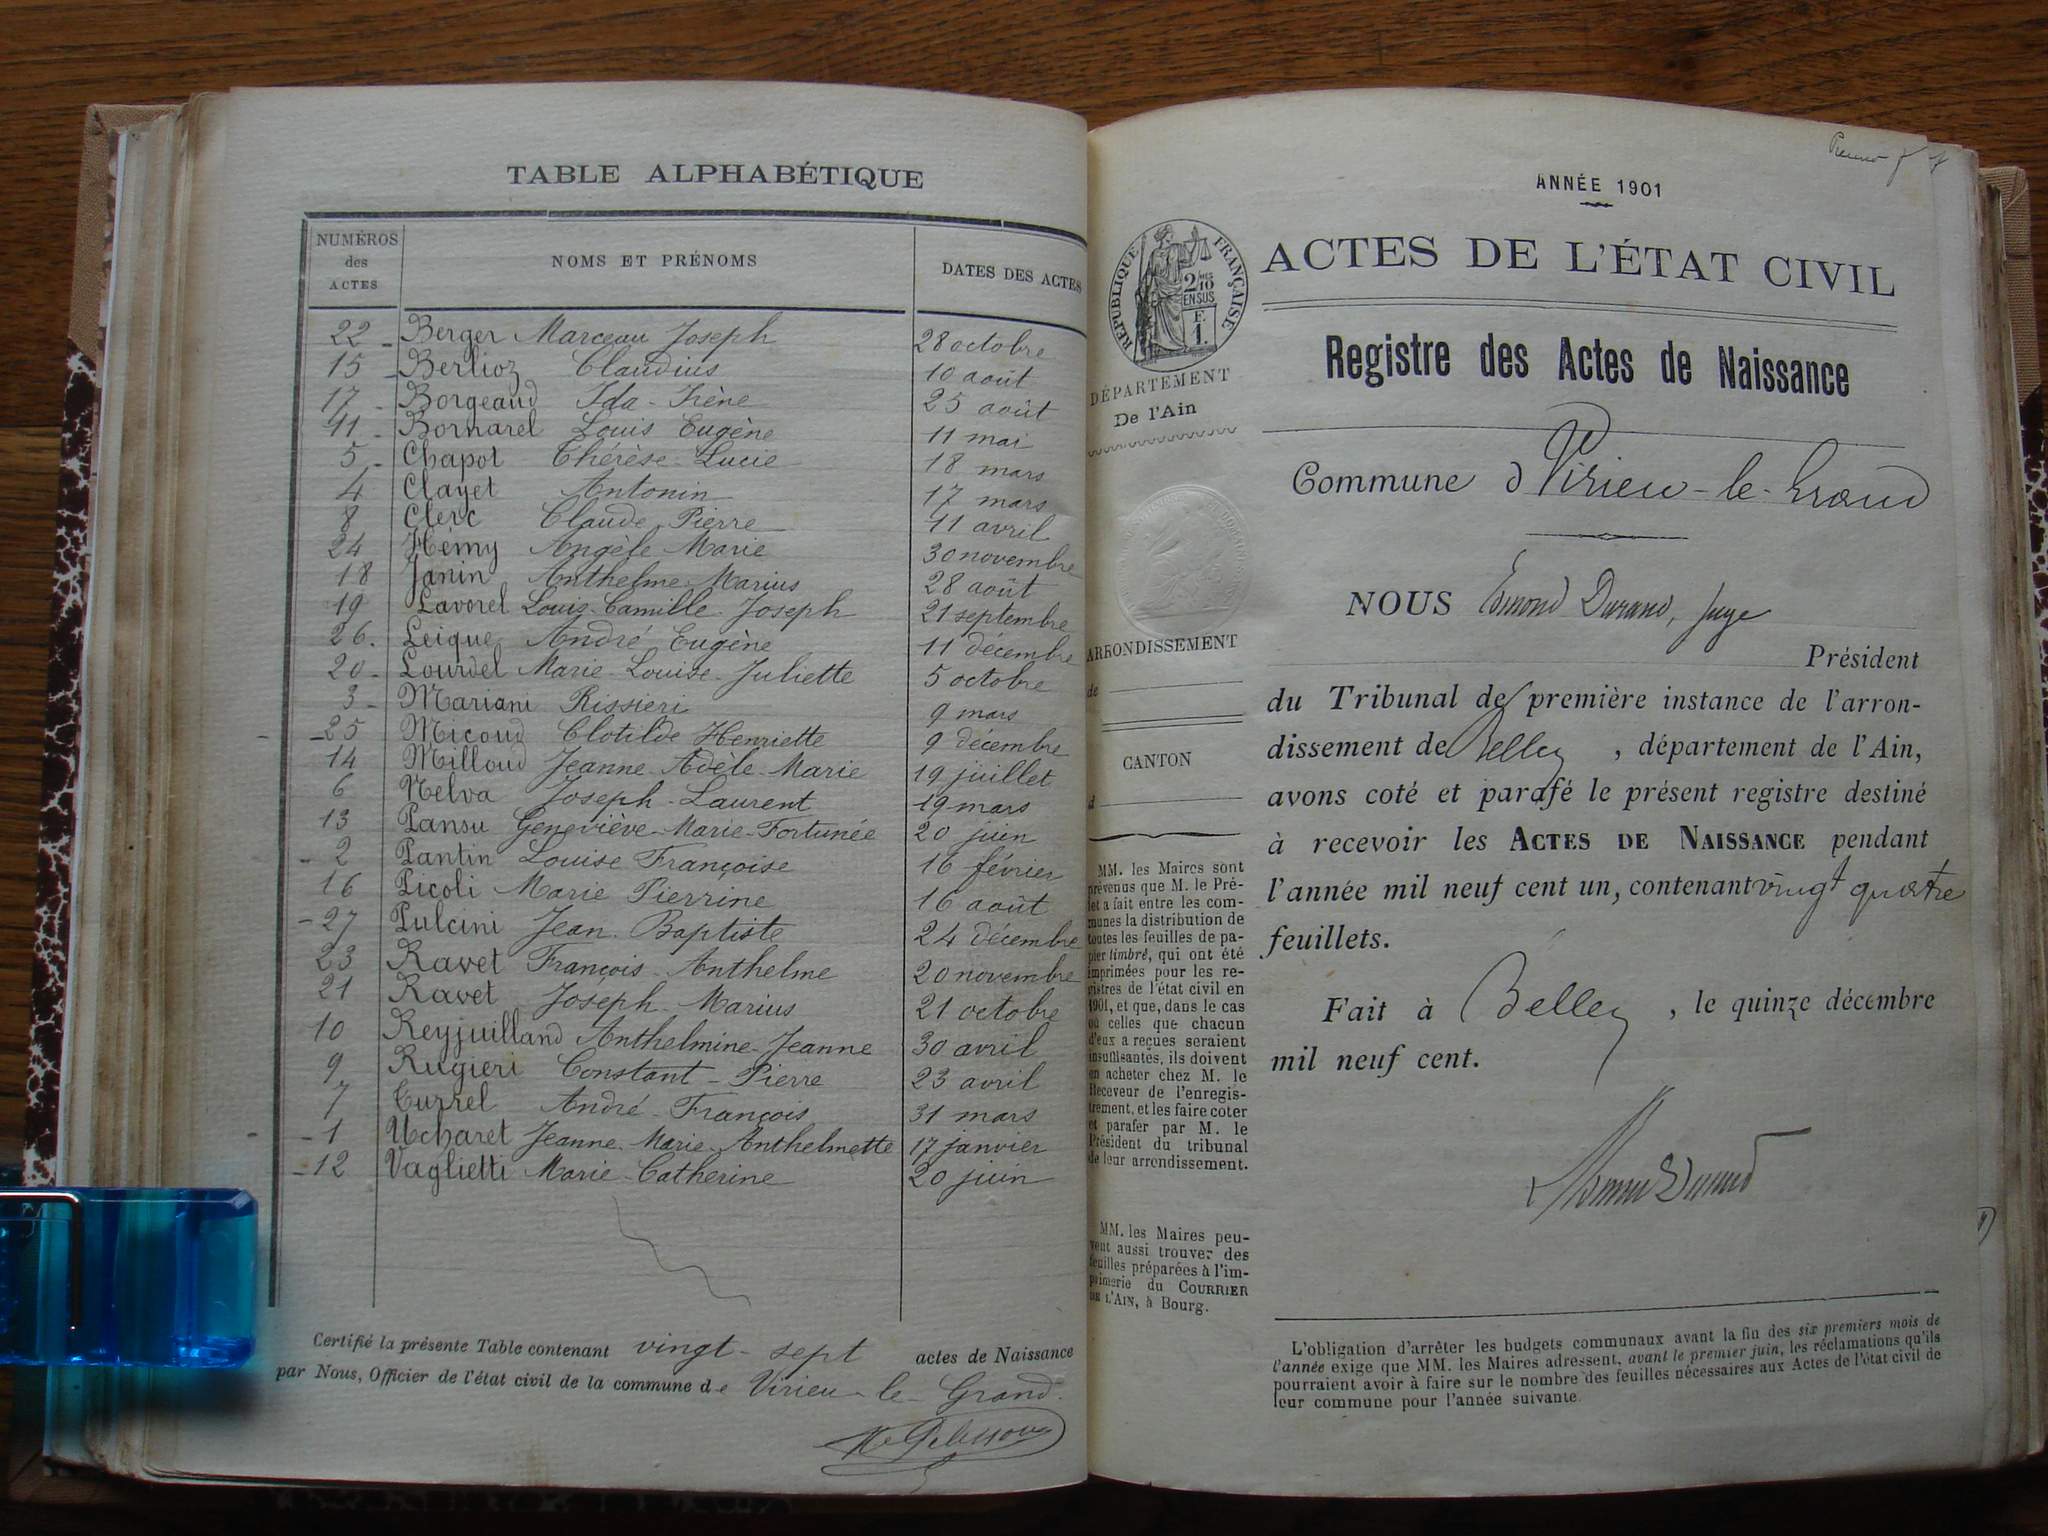 TABLE ALPHABÉTIQUE
NUMÉROS des ACTES NOMS ET PRÉNOMS DATES DES ACTES
22 - Berger Marceau Joseph 28 octobre
15 - Berlioz Claudius 10 août
17 - Borgeaud Ida-Irène 25 août
11 - Bornarel Louis Eugène 11 mai
5 - Chapot Thérèse-Lucie 18 mars
4 Clayet Antonin 17 mars
8 Clerc Claude Pierre 11 avril
24 Hémy Angèle Marie 30 novembre
18 Janin Anthelme-Marius 28 août
19 Lavorel Louis-Camille-Joseph 21 septembre
26. Leique André Eugène 11 décembre
20 - Lourdel Marie-Louise-Juliette 5 octobre
3 - Mariani Rissieri 9 mars
- 25 Micoud Clotilde Henriette 9 décembre
14 Milloud Jeanne-Adèle-Marie 19 juillet
6 Nelva Joseph-Laurent 19 mars
13 Pansu Geneviève-Marie-Fortunée 20 juin
- 2 Pantin Louise Françoise 16 février
16 Picoli Marie Pierrine 16 août
- 27 Pulcini Jean Baptiste 24 décembre
23 Ravet François-Anthelme 20 novembre
21 Ravet Joseph-Marius 21 octobre
10 Reyjuilland Anthelmine-Jeanne 30 avril
9 Rugieri Constant-Pierre 23 avril
7 Currel André-François 31 mars
- 1 Ucharet Jeanne-Marie-Anthelmette 17 janvier
- 12 Vaglietti Marie-Catherine 20 juin
Certifié la présente Table contenant vingt-sept actes de Naissance
par Nous, Officier de l'état civil de la commune de Virieu-le-Grand.
ANNÉE 1901
RÉPUBLIQUE FRANÇAISE
2/10 EN SUS
F. 1.
DÉPARTEMENT
De l'Ain
ARRONDISSEMENT
de
CANTON
d
MM. les Maires sont
prévenus que M. le Pré-
fet a fait entre les com-
munes la distribution de
toutes les feuilles de pa-
pier timbré, qui ont été
imprimées pour les re-
gistres de l'état civil en
1901, et que, dans le cas
où celles que chacun
d'eux a reçues seraient
insuffisantes, ils doivent
en acheter chez M. le
Receveur de l'enregis-
trement, et les faire coter
et parafer par M. le
Président du tribunal
de leur arrondissement.
MM. les Maires peu-
vent aussi trouver des
feuilles préparées à l'im-
primerie du COURRIER
DE L'AIN, à Bourg.
ACTES DE L'ÉTAT CIVIL
Registre des Actes de Naissance
Commune d Virieu-le-Grand
NOUS Edmond Durand, juge
Président
du Tribunal de première instance de l'arron-
dissement de Belley, département de l'Ain,
avons coté et parafé le présent registre destiné
à recevoir les ACTES DE NAISSANCE pendant
l'année mil neuf cent un, contenant vingt quatre
feuillets.
Fait à Belley, le quinze décembre
mil neuf cent.
L'obligation d'arrêter les budgets communaux avant la fin des six premiers mois de
l'année exige que MM. les Maires adressent, avant le premier juin, les réclamations qu'ils
pourraient avoir à faire sur le nombre des feuilles nécessaires aux Actes de l'état civil de
leur commune pour l'année suivante.